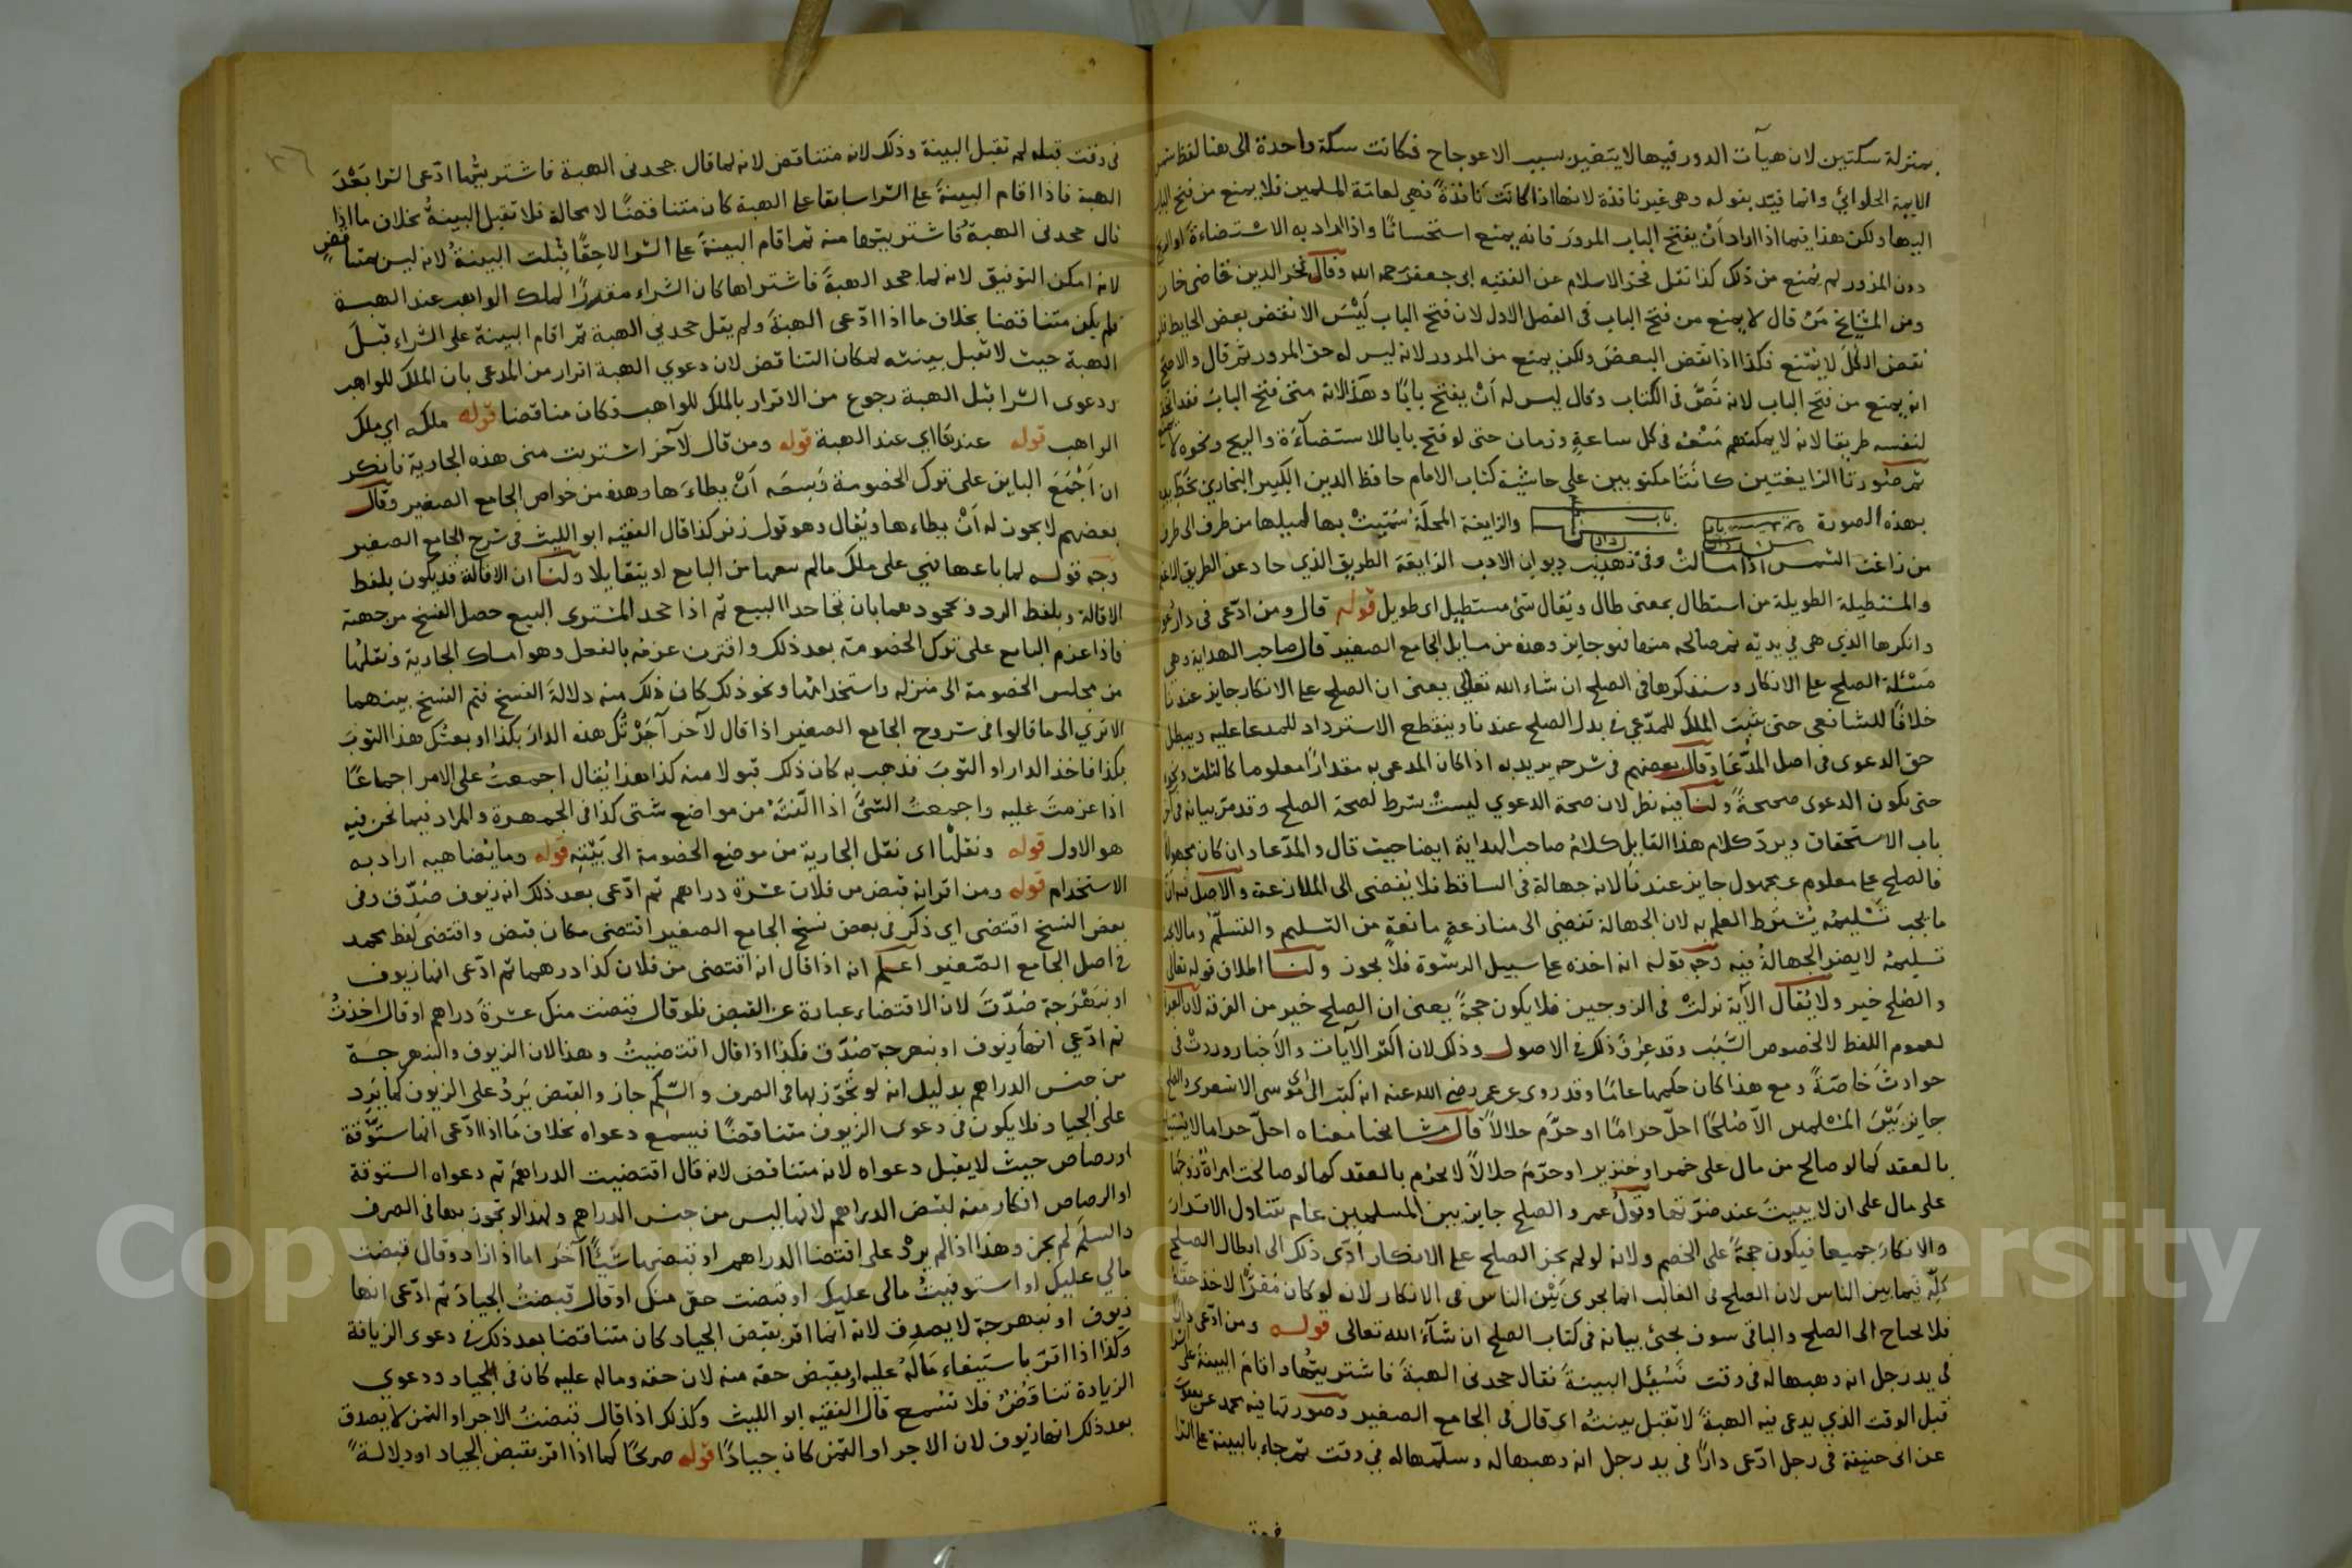 بمنزلة سكتين لان هيآت الدور فيها لا يتغير بسبب الاعوجاج فكانت سكة واحدة الى هنا لفظ شمس
الايمة الحلوائي وانما قيد بقوله وهى غير نافذة لانها اذا كانت نافذة فهى لعامة المسلمين فلا يمنع من فتح الباب
اليها ولكن هذا فيما اذا اراد أن يفتح الباب للمرور فانه يمنع استحسانا واذا اراد به الاستضاءة او الريح
دون المرور لم يمنع من ذلك كذا نقل فخر الاسلام عن الفقيه ابى جعفر رحمه الله وقال فخر الدين قاضى خان
ومن المشايخ من قال لا يمنع من فتح الباب فى الفصل الاول لان فتح الباب ليس الا نقض بعض الحايط فلو
نقض الكل لا يمنع فكذا اذا نقض البعض ولكن يمنع من المرور لانه ليس له حق المرور ثم قال والاصح
انه يمنع من فتح الباب لانه نص فى الكتاب وقال ليس له أن يفتح بابا وهذا لانه متى فتح الباب فقد اتخذ
لنفسه طريقا لانه لا يمكنهم منعه فى كل ساعة وزمان حتى لو فتح بابا للاستضآءة والريح ونحوه لا
ثم صورتا الزايغتين كانتا مكتوبين على حاشية كتاب الامام حافظ الدين الكبير البخارى بخط يده
بهذه الصورة والزايغة المحلة سميت بها لميلها من طرف الى طرف
من زاغت الشمس اذا مالت وفى تهذيب ديوان الادب الزايغة الطريق الذي حاد عن الطريق الاعظم
والمستطيلة الطويلة من استطال بمعنى طال ويقال شئ مستطيل اى طويل قوله قال ومن ادعى فى دار دعوى
وانكرها الذي هى فى يديه ثم صالحه منها فهو جايز وهذه من مسايل الجامع الصغير قال صاحب الهداية وهى
مسئلة الصلح على الانكار وسنذكرها فى الصلح ان شاء الله تعالى يعنى ان الصلح على الانكار جايز عندنا
خلافا للشافعى حتى يثبت الملك للمدعى فى بدل الصلح عندنا وينقطع الاسترداد للمدعا عليه ويبطل
حق الدعوى فى اصل المدعا وقال بعضهم فى شرحه يريد به اذا كان المدعى به مقدارا معلوما كالثلث ونحوه
حتى يكون الدعوى صحيحة ولنا فيه نظر لان صحة الدعوي ليست بشرط لصحة الصلح وقد مر بيانه فى آخر
باب الاستحقاق ويرد كلام هذا القايل كلام صاحب الهداية ايضا حيث قال والمدعا وان كان مجهولا
فالصلح على معلوم عن مجهول جايز عندنا لانه جهالة فى الساقط فلا يفضى الى المنازعة والاصل فيه ان
ما يجب تسليمه يشترط العلم به لان الجهالة تفضي الى منازعة مانعة من التسليم والتسلم وما لا يجب
تسليمه لا يضر الجهالة فيه وجه قوله انه اخذه على سبيل الرشوة فلا يجوز ولنا اطلاق قوله تعالى
والصلح خير ولا يقال الآية نزلت فى الزوجين فلا يكون حجة يعنى ان الصلح خير من الفرقة لان العبرة
لعموم اللفظ لا لخصوص السبب وقد عرف ذلك فى الاصول وذلك لان اكثر الآيات والاخبار وردت فى
حوادث خاصة ومع هذا كان حكمها عاما وقد روى عن عمر رضى الله عنه انه كتب الى ابى موسى الاشعرى والصلح
جايز بين المسلمين الا صلحا احل حراما او حرم حلالا قال مشايخنا معناه احل حراما لا يستباح
بالعقد كما لو صالح من مال على خمر او خنزير او حرم حلالا لا يحرم بالعقد كما لو صالحت امراة زوجها
على مال على ان لا يبيت عند ضرتها وقول عمر والصلح جايز بين المسلمين عام تتناول الاقرار
والانكار جميعا فيكون حجة على الخصم ولانه لو لم يجز الصلح على الانكار ادى ذلك الى ابطال الصلح
كله فيما بين الناس لان الصلح فى الغالب انما يجرى بين الناس فى الانكار لانه لو كان مقرا لاخذ حقه
فلا يحتاج الى الصلح والباقى سوف يجئ بيانه فى كتاب الصلح ان شآء الله تعالى قوله ومن ادعى دارا
فى يد رجل انه وهبها له فى وقت فسئل البينة فقال جحدنى الهبة فاشتريتها واقام البينة على الشرا
قبل الوقت الذي يدعى فيه الهبة لا تقبل بينته اى قال فى الجامع الصغير وصورتها فيه محمد عن يعقوب
عن ابى حنيفة فى رجل ادعى دارا فى يد رجل انه وهبها له وسلمها له فى وقت ثم جاء بالبينة على الشرا
فى وقت قبله لم تقبل البينة وذلك لانه متناقض لانه لما قال جحدنى الهبة فاشتريتها ادعى الشرا بعد
الهبة فاذا اقام البينة على الشرا سابقا على الهبة كان متناقضا لا محالة فلا تقبل البينة بخلاف ما اذا
قال جحدنى الهبة فاشتريتها منه ثم اقام البينة على الشرا لاحقا قبلت البينة لانه ليس بمتناقض
لانه امكن التوفيق لانه لما جحد الهبة فاشتراها كان الشراء مقررا لملك الواهب عند الهبة
فلم يكن متناقضا بخلاف ما اذا ادعى الهبة ولم يقل جحدنى الهبة ثم اقام البينة على الشراء قبل
الهبة حيث لا تقبل بينته لمكان التناقض لان دعوي الهبة اقرار من المدعى بان الملك للواهب
ودعوى الشرا قبل الهبة رجوع من الاقرار بالملك للواهب فكان مناقضا قوله ملكه اي ملك
الواهب قوله عندها اي عند الهبة قوله ومن قال لآخر اشتريت منى هذه الجارية فانكر
ان اجمع البايع على ترك الخصومة وسعه أن يطاءها وهذه من خواص الجامع الصغير وقال
بعضهم لا يجوز له أن يطاءها ويقال وهو قول زفر كذا قال الفقيه ابو الليث فى شرح الجامع الصغير
وجه قوله لما باعها فهي على ملك ما لم يبعها من البايع او يتقايلا ولنا ان الاقالة قد يكون بلفظ
الاقالة وبلفظ الرد وبجحودهما بان تجاحدا البيع ثم اذا جحد المشترى البيع حصل الفسخ من جهته
فاذا عزم البايع على ترك الخصومة بعد ذلك واقترن عزمه بالفعل وهو امساك الجارية ونقلها
من مجلس الخصومة الى منزله واستخدامها ونحو ذلك كان ذلك منه دلالة الفسخ فتم الفسخ بينهما
الا تري الى ما قالوا فى شروح الجامع الصغير اذا قال لآخر آجرتك هذه الدار بكذا او بعتك هذا الثوب
بكذا فاخذ الدار او الثوب فذهب به كان ذلك قبولا منه كذا هذا يقال اجمعت على الامر اجماعا
اذا عزمت عليه واجمعت الشئ اذا الفته من مواضع شتى كذا فى الجمهرة والمراد فيما نحن فيه
هو الاول قوله ونقلها اى نقل الجارية من موضع الخصومة الى بيته قوله وما يضاهيه اراد به
الاستخدام قوله ومن اقر انه قبض من فلان عشرة دراهم ثم ادعى بعد ذلك انه زيوف صدق وفى
بعض النسخ اقتضى اى ذكر فى بعض نسخ الجامع الصغير اقتضى مكان قبض واقتضى لفظ محمد
فى اصل الجامع الصغير اعلم انه اذا قال انه اقتضى من فلان كذا درهما ثم ادعى انها زيوف
او نبهرجة صدق لان الاقتضاء عبارة عن القبض فلو قال قبضت منك عشرة دراهم او قال اخذت
ثم ادعى انها زيوف او نبهرجة صدق فكذا اذا قال اقتضيت وهذا لان الزيوف والنبهرجة
من جنس الدراهم بدليل انه لو تجوز بها فى الصرف والسلم جاز والقبض يرد على الزيوف كما يرد
على الجياد فلا يكون فى دعوى الزيوف متناقضا فيسمع دعواه بخلاف ما اذا ادعى انها ستوقة
او رصاص حيث لا يقبل دعواه لانه متناقض لانه قال اقتضيت الدراهم ثم دعواه الستوقة
او الرصاص انكار منه لقبض الدراهم لانها ليس من جنس الدراهم ولهذا لو تجوز بها فى الصرف
والسلم لم يجز وهذا اذا لم يزد على اقتضا الدراهم او قبضها شيئا آخر اما اذا زاد وقال قبضت
مالي عليك او استوفيت مالى عليك او قبضت حقى منك او قال قبضت الجياد ثم ادعى انها
زيوف او نبهرجة لا يصدق لانه انما اقر بقبض الجياد كان متناقضا بعد ذلك فى دعوى الزيافة
وكذا اذا اقر باستيفاء ماله عليه او بقبض حقه منه لان حقه وماله عليه كان فى الجياد ودعوي
الزيادة تناقض فلا تسمع قال الفقيه ابو الليث وكذلك اذا قال قبضت الاجر او الثمن لا يصدق
بعد ذلك انها زيوف لان الاجر او الثمن كان جيادا قوله صريحا كما اذا اقر بقبض الجياد او دلالة
Copyright © King Saud University